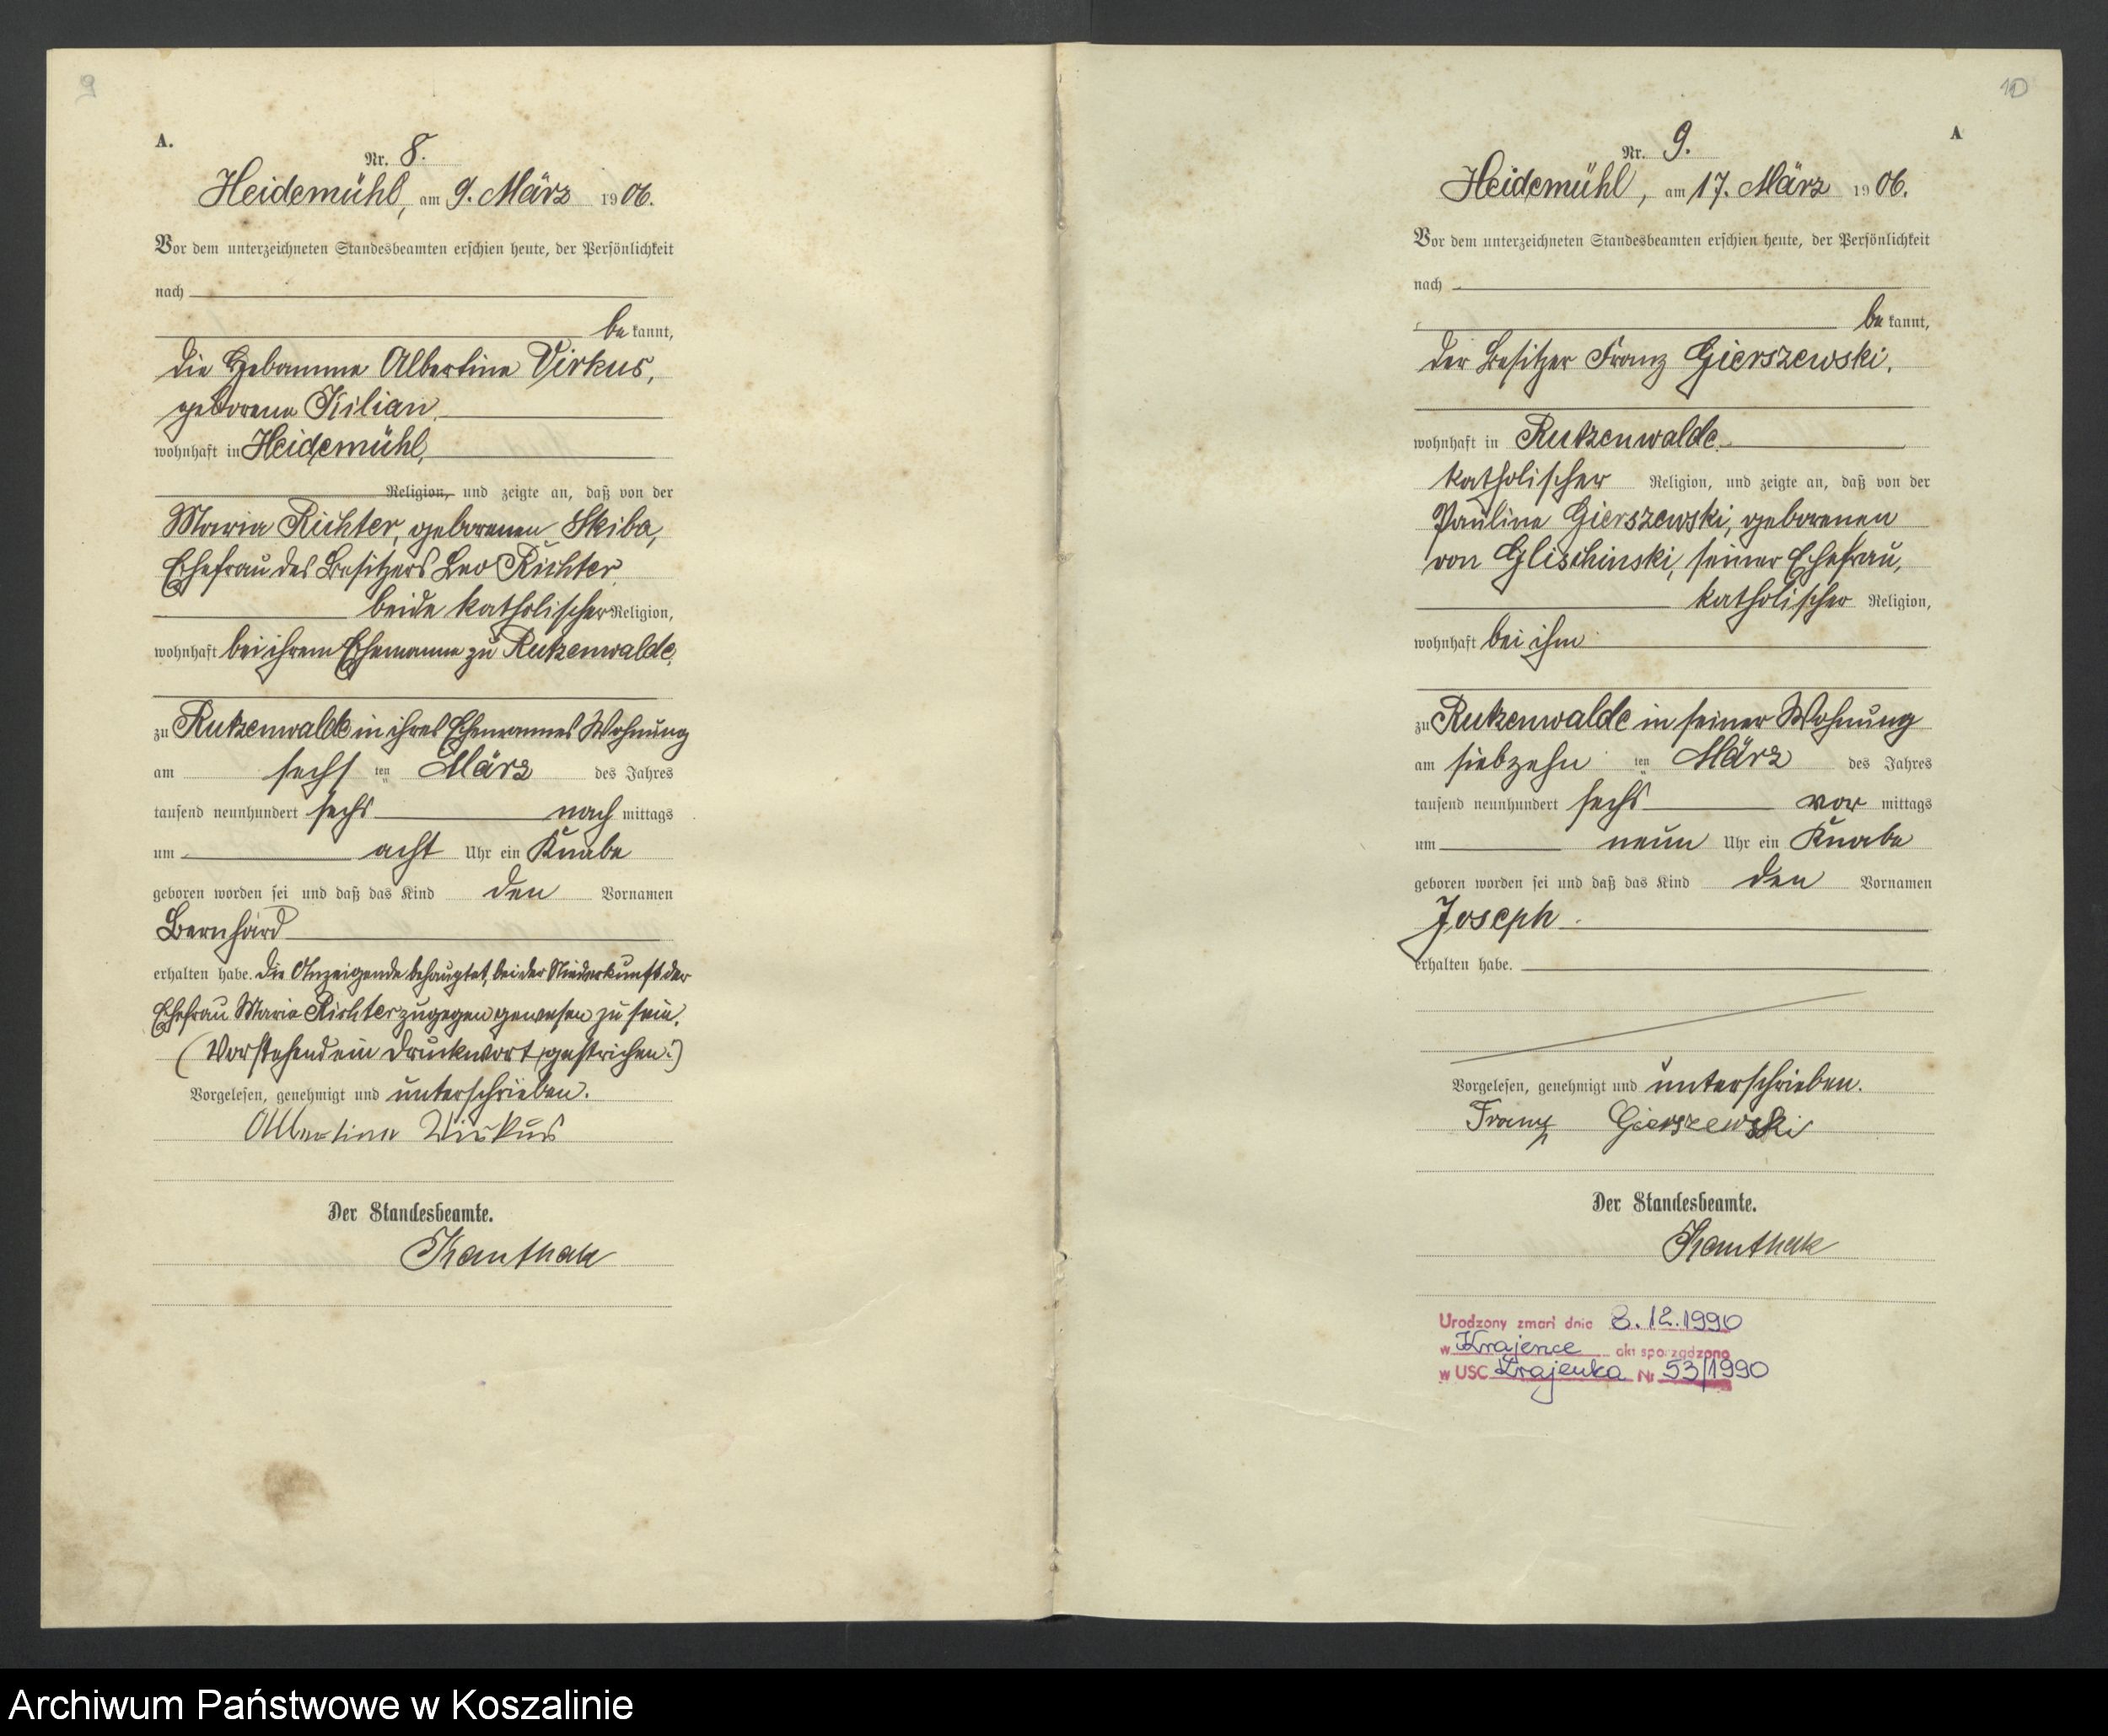 9
A.
Nr. 8.
Heidemühl, am 9. März 1906.
Vor dem unterzeichneten Standesbeamten erschien heute, der Persönlichkeit
nach
bekannt,
die Hebamme Albertine Virkus,
geborene Kilian,
wohnhaft in Heidemühl,
Religion, und zeigte an, daß von der
Maria Richter, geborenen Skiba,
Ehefrau des Besitzers Leo Richter,
beide katholischer Religion,
wohnhaft bei ihrem Ehemanne zu Rutzenwalde,
zu Rutzenwalde in ihres Ehemannes Wohnung
am sechsten März des Jahres
tausend neunhundert sechs nachmittags
um acht Uhr ein Knabe
geboren worden sei und daß das Kind den Vornamen
Bernhard
erhalten habe. Die Anzeigende behauptet, bei der Niederkunft der
Ehefrau Maria Richter zugegen gewesen zu sein.
(Vorstehend ein Druckwort gestrichen.)
Vorgelesen, genehmigt und unterschrieben.
Albertine Virkus
Der Standesbeamte.
Kanthak
10
A
Nr. 9.
Heidemühl, am 17. März 1906.
Vor dem unterzeichneten Standesbeamten erschien heute, der Persönlichkeit
nach
bekannt,
der Besitzer Franz Gierszewski,
wohnhaft in Rutzenwalde,
katholischer Religion, und zeigte an, daß von der
Pauline Gierszewski, geborenen
von Glischinski, seiner Ehefrau,
katholischer Religion,
wohnhaft bei ihm
zu Rutzenwalde in seiner Wohnung
am siebzehnten März des Jahres
tausend neunhundert sechs vormittags
um neun Uhr ein Knabe
geboren worden sei und daß das Kind den Vornamen
Joseph
erhalten habe.
Vorgelesen, genehmigt und unterschrieben.
Franz Gierszewski
Der Standesbeamte.
Kanthak
Urodzony zmarł dnia 8.12.1990
w Krajence akt sporządzono
w USC Krajenka Nr 53/1990
Archiwum Państwowe w Koszalinie